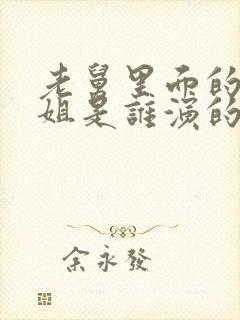 老舅里面的
姐是誰演的
余永發